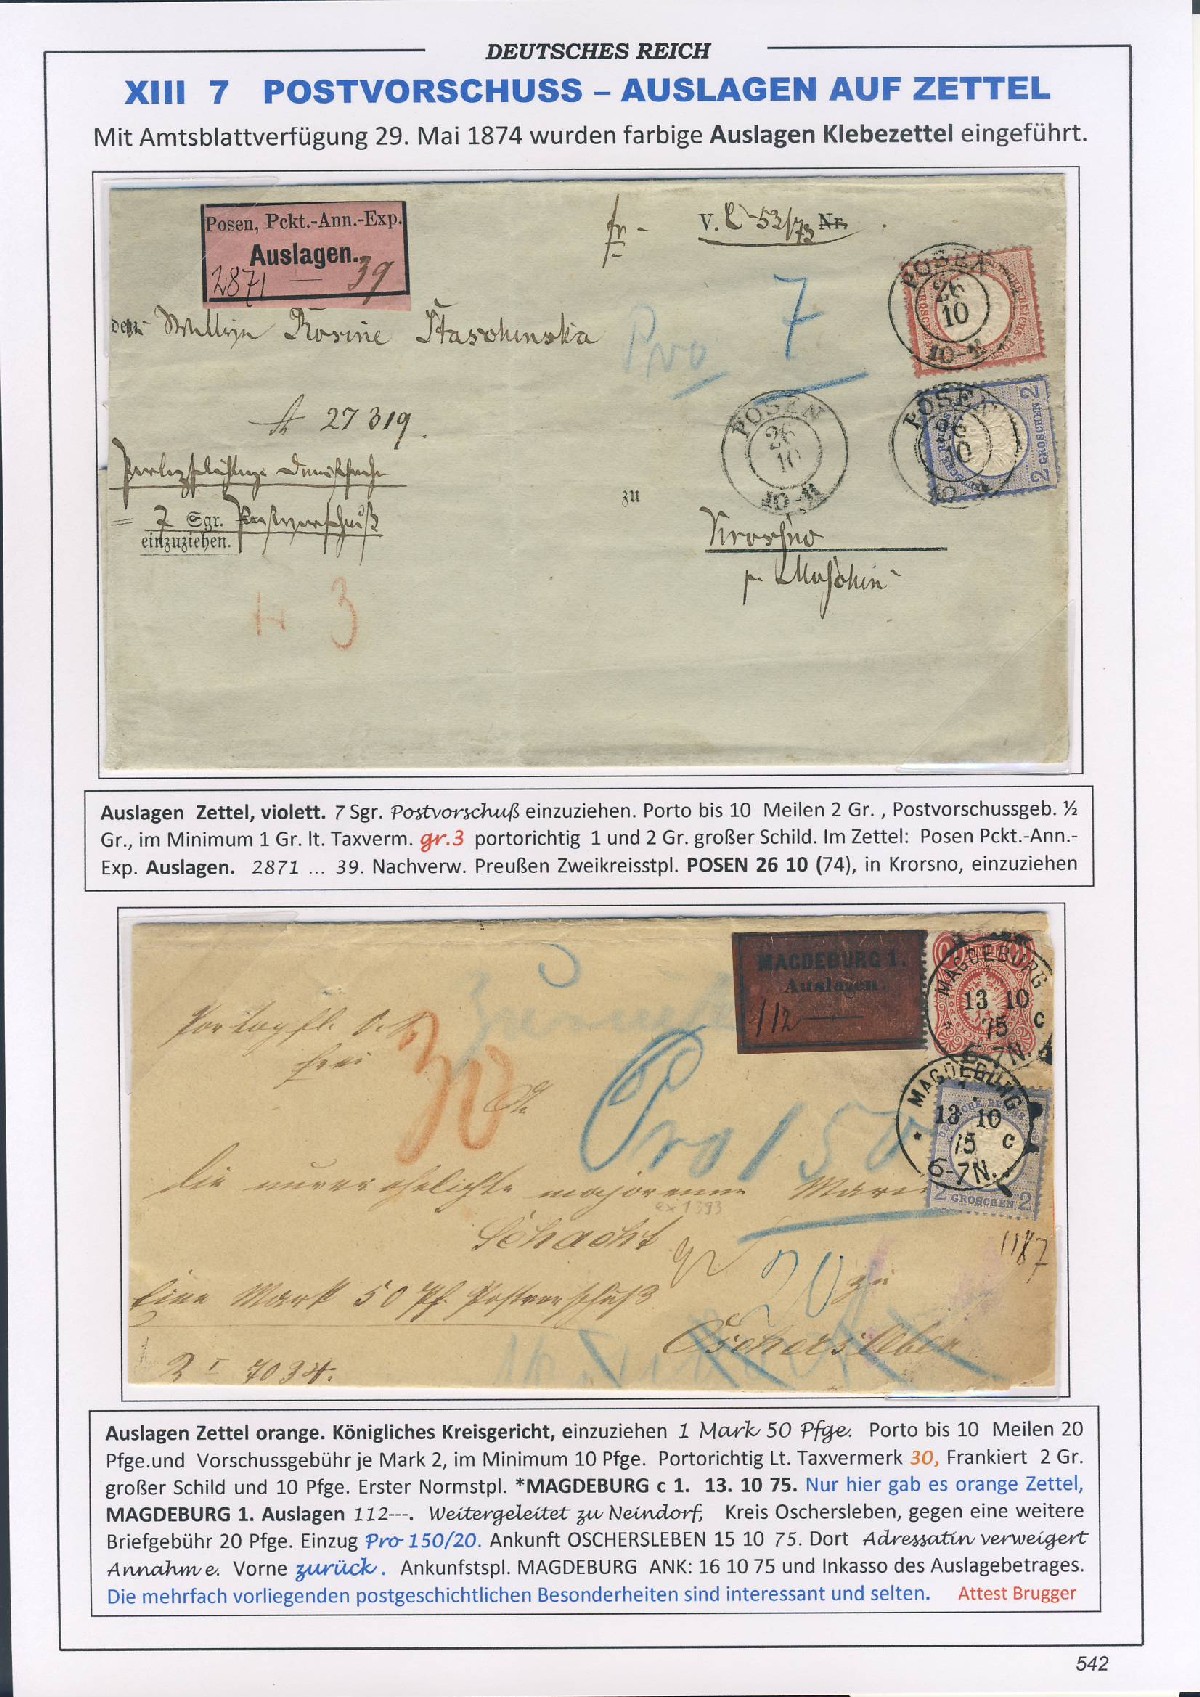 DEUTSCHES REICH
XIII 7 POSTVORSCHUSS – AUSLAGEN AUF ZETTEL
Mit Amtsblattverfügung 29. Mai 1874 wurden farbige Auslagen Klebezettel eingeführt.
Posen, Pckt.-Ann.-Exp.
Auslagen.
2871 — 39
fr. V. Nr.
POSEN
26
10
Pro 7
Rosine
№ 27 319.
POSEN
26
10
10-11
POSEN
26
10
2 GROSCHEN 2
= 7 Sgr. Postvorschuß
einzuziehen.
zu
Krorsno
p. Moschin
3
Auslagen Zettel, violett. 7 Sgr. Postvorschuß einzuziehen. Porto bis 10 Meilen 2 Gr. , Postvorschussgeb. ½
Gr., im Minimum 1 Gr. lt. Taxverm. gr.3 portorichtig 1 und 2 Gr. großer Schild. Im Zettel: Posen Pckt.-Ann.-
Exp. Auslagen. 2871 ... 39. Nachverw. Preußen Zweikreisstpl. POSEN 26 10 (74), in Krorsno, einzuziehen
MAGDEBURG 1.
Auslagen.
112 —
MAGDEBURG
13 10
75 c
6-7N.
MAGDEBURG
13 10
75 c
6-7N.
2 GROSCHEN 2
30
Pro 150
Schacht
20 zu
1187
Eine Mark 50 Pf. Postvorschuß
Oschersleben
Auslagen Zettel orange. Königliches Kreisgericht, einzuziehen 1 Mark 50 Pfge. Porto bis 10 Meilen 20
Pfge.und Vorschussgebühr je Mark 2, im Minimum 10 Pfge. Portorichtig Lt. Taxvermerk 30, Frankiert 2 Gr.
großer Schild und 10 Pfge. Erster Normstpl. *MAGDEBURG c 1. 13. 10 75. Nur hier gab es orange Zettel,
MAGDEBURG 1. Auslagen 112---. Weitergeleitet zu Neindorf, Kreis Oschersleben, gegen eine weitere
Briefgebühr 20 Pfge. Einzug Pro 150/20. Ankunft OSCHERSLEBEN 15 10 75. Dort Adressatin verweigert
Annahme. Vorne zurück. Ankunfstspl. MAGDEBURG ANK: 16 10 75 und Inkasso des Auslagebetrages.
Die mehrfach vorliegenden postgeschichtlichen Besonderheiten sind interessant und selten. Attest Brugger
542